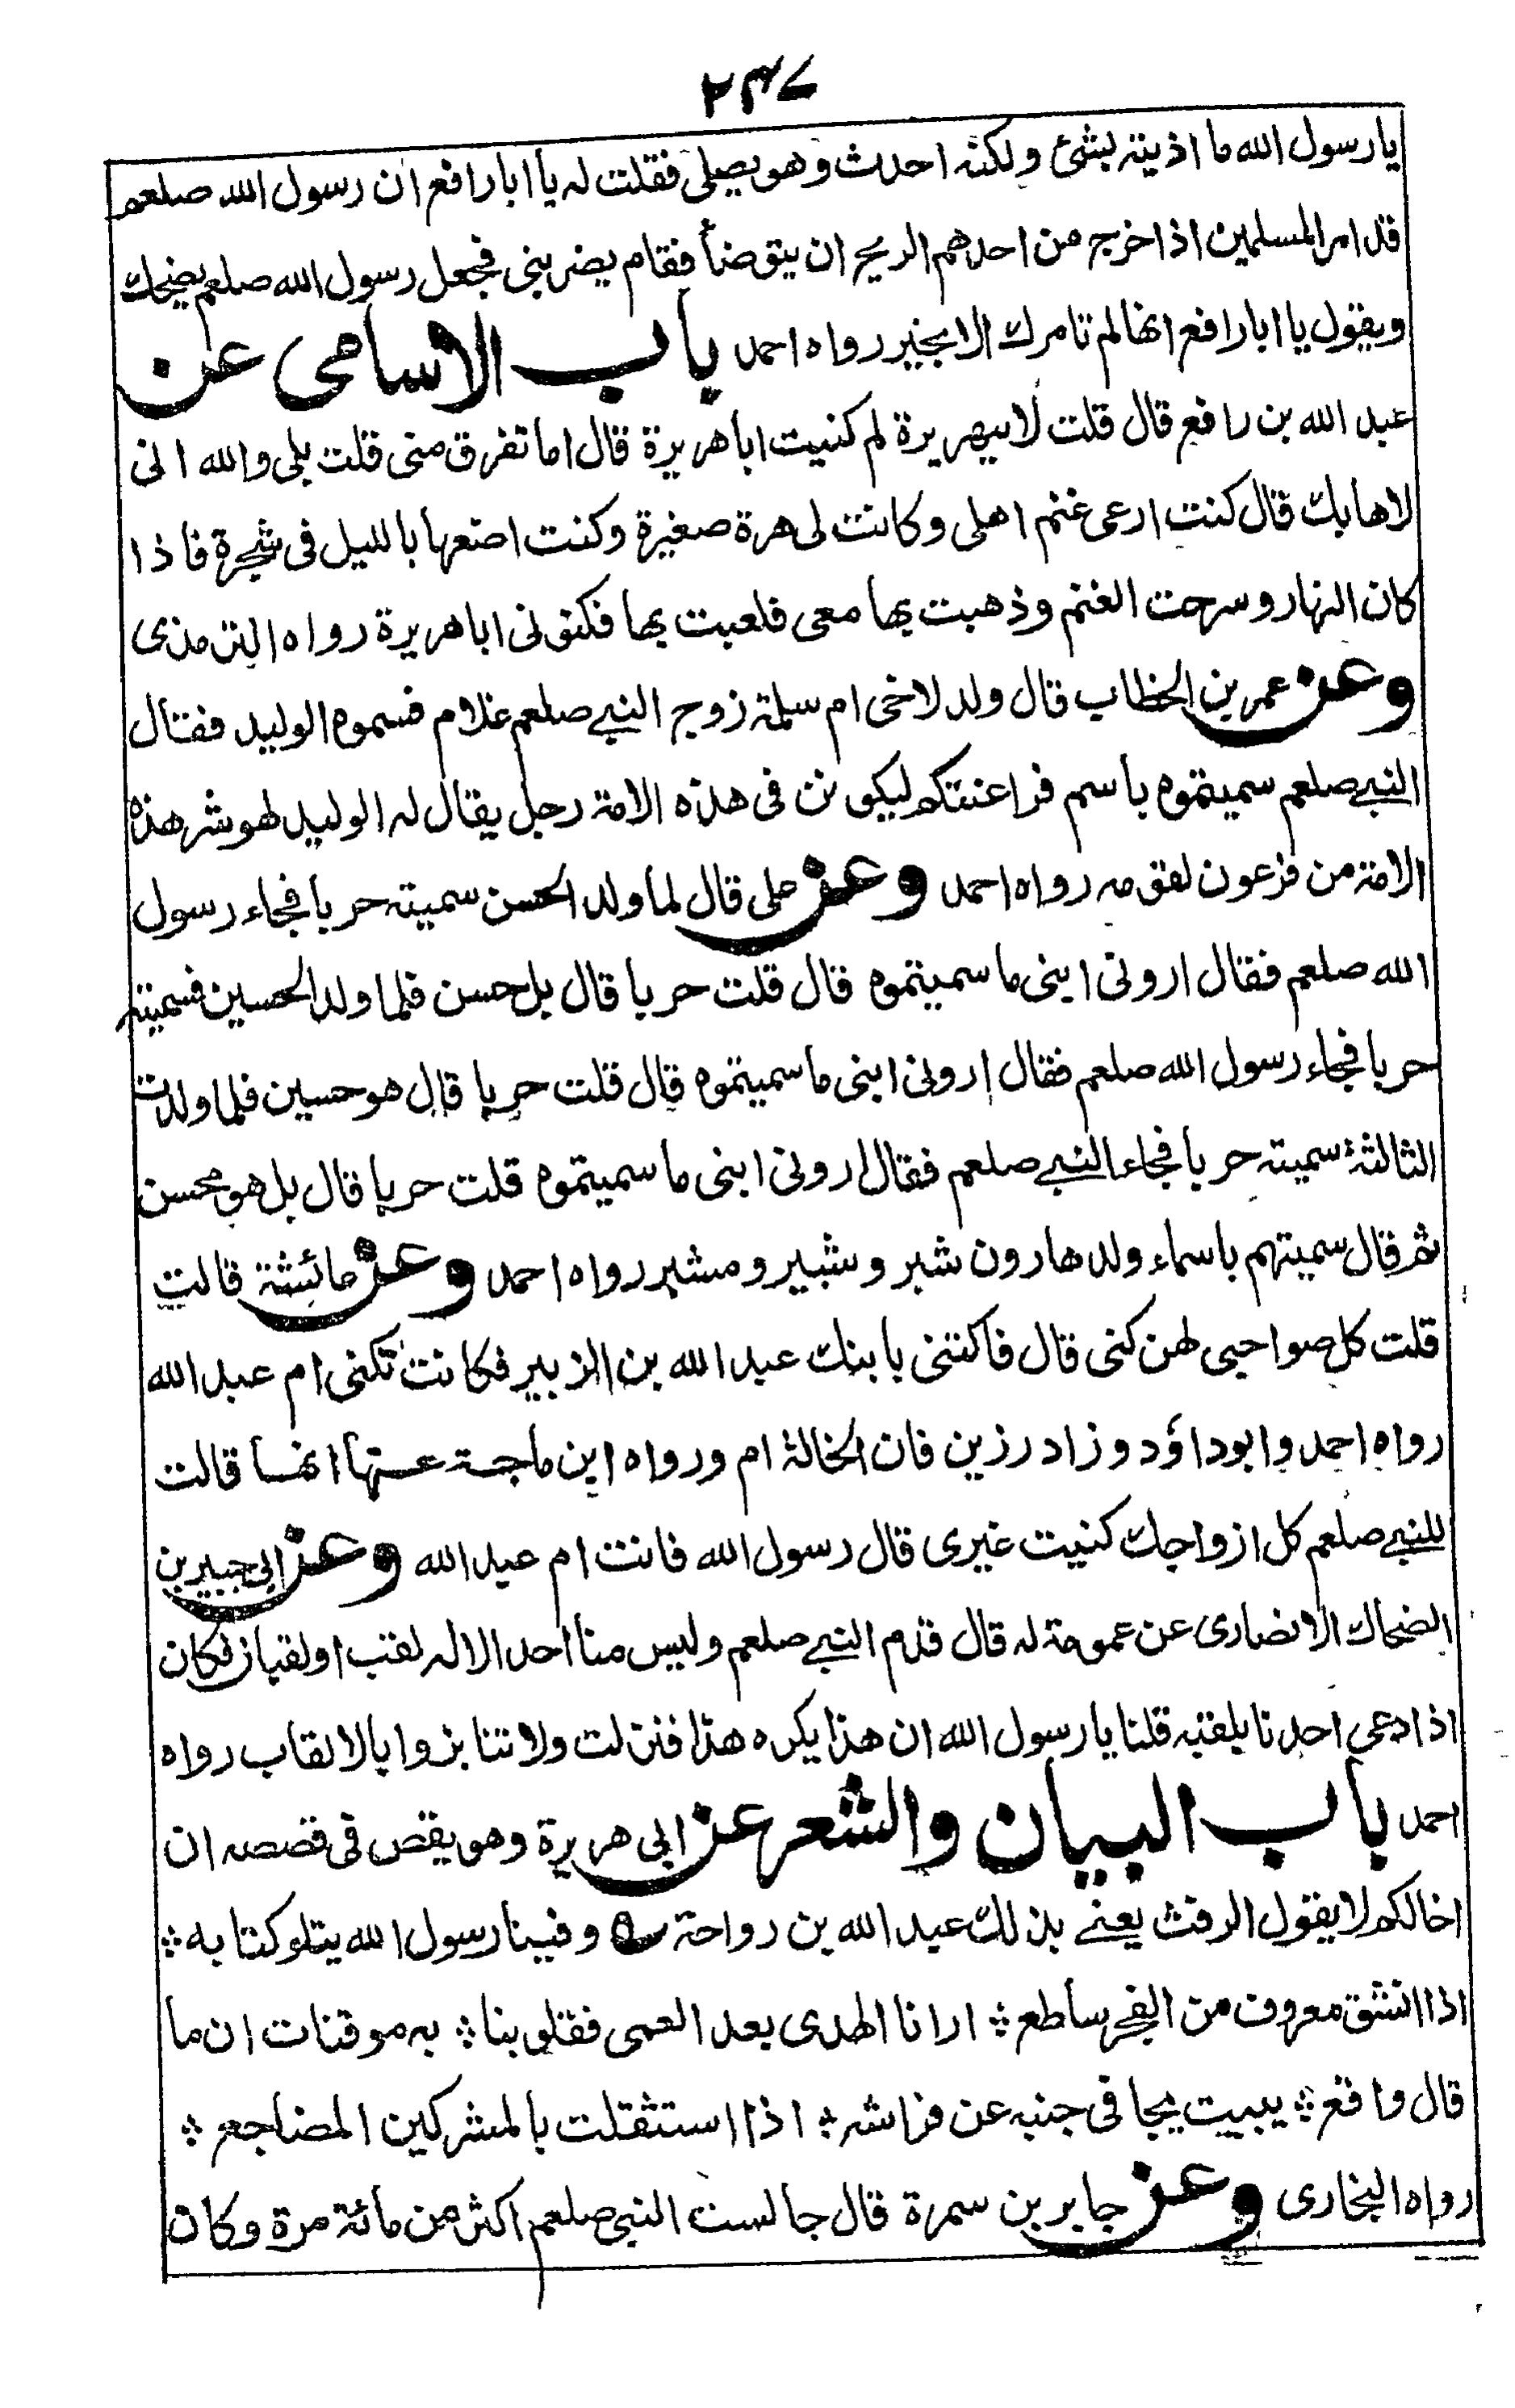 ۲۳۷
يا رسول الله ما اذيته بشئ ولكنه احدث وهو يصلى فقلت له يا ابا رافع ان رسول الله صلعم
قد امر المسلمين اذا خرج من احدهم الريح ان يتوضأ فقام يضربنى فجعل رسول الله صلعم يضحك
ويقول يا ابا رافع انها لم تامرك الا بخير رواه احمد باب الاسامى عن
عبد الله بن رافع قال قلت لابيهريرة لم كنيت ابا هريرة قال اما تفرق منى قلت بلى والله انى
لاهابك قال كنت ارعى غنم اهلى وكانت لى هرة صغيرة وكنت اضعها بالليل فى شجرة فاذا
كان النهار وسرحت الغنم وذهبت بها معى فلعبت بها فكنونى ابا هريرة رواه الترمذى
وعن عمر بن الخطاب قال ولد لاخى ام سلمة زوج النبى صلعم غلام فسموه الوليد فقال
النبى صلعم سميتموه باسم فراعنتكم ليكونن فى هذه الامة رجل يقال له الوليد لهو شر هذه
الامة من فرعون لقومه رواه احمد وعن على قال لما ولد الحسن سميته حربا فجاء رسول
الله صلعم فقال ارونى ابنى ما سميتموه قال قلت حربا قال بل حسن فلما ولد الحسين فسميته
حربا فجاء رسول الله صلعم فقال ارونى ابنى ما سميتموه قال قلت حربا قال هو حسين فلما ولدت
الثالثة سميته حربا فجاء النبى صلعم فقال ارونى ابنى ما سميتموه قلت حربا قال بل هو محسن
ثم قال سميتهم باسماء ولد هارون شبر وشبير ومشبر رواه احمد وعن عائشة قالت
قلت كل صواحبى لهن كنى قال فاكتنى بابنك عبد الله بن الزبير فكانت تكنى ام عبد الله
رواه احمد وابوداؤد وزاد رزين فان الخالة ام ورواه ابن ماجة عنها انها قالت
للنبى صلعم كل ازواجك كنيت غيرى قال رسول الله فانت ام عبد الله وعن ابى جبير بن
الضحاك الانصارى عن عمومة له قال قدم النبى صلعم وليس منا احد الا له لقب او لقبان فكان
اذا دعى احدنا بلقبه قلنا يا رسول الله ان هذا يكره هذا فنزلت ولا تنابزوا بالالقاب رواه
احمد باب البيان والشعر عن ابى هريرة وهو يقص فى قصصه ان
اخا لكم لا يقول الرفث يعنى بذلك عبد الله بن رواحة وفينا رسول الله يتلو كتابه ؞
اذا انشق معروف من الفجر ساطع ؞ ارانا الهدى بعد العمى فقلوبنا ؞ به موقنات ان ما
قال واقع ؞ يبيت يجافى جنبه عن فراشه ؞ اذا استثقلت بالمشركين المضاجع ؞
رواه البخارى وعن جابر بن سمرة قال جالست النبى صلعم اكثر من مائة مرة وكان